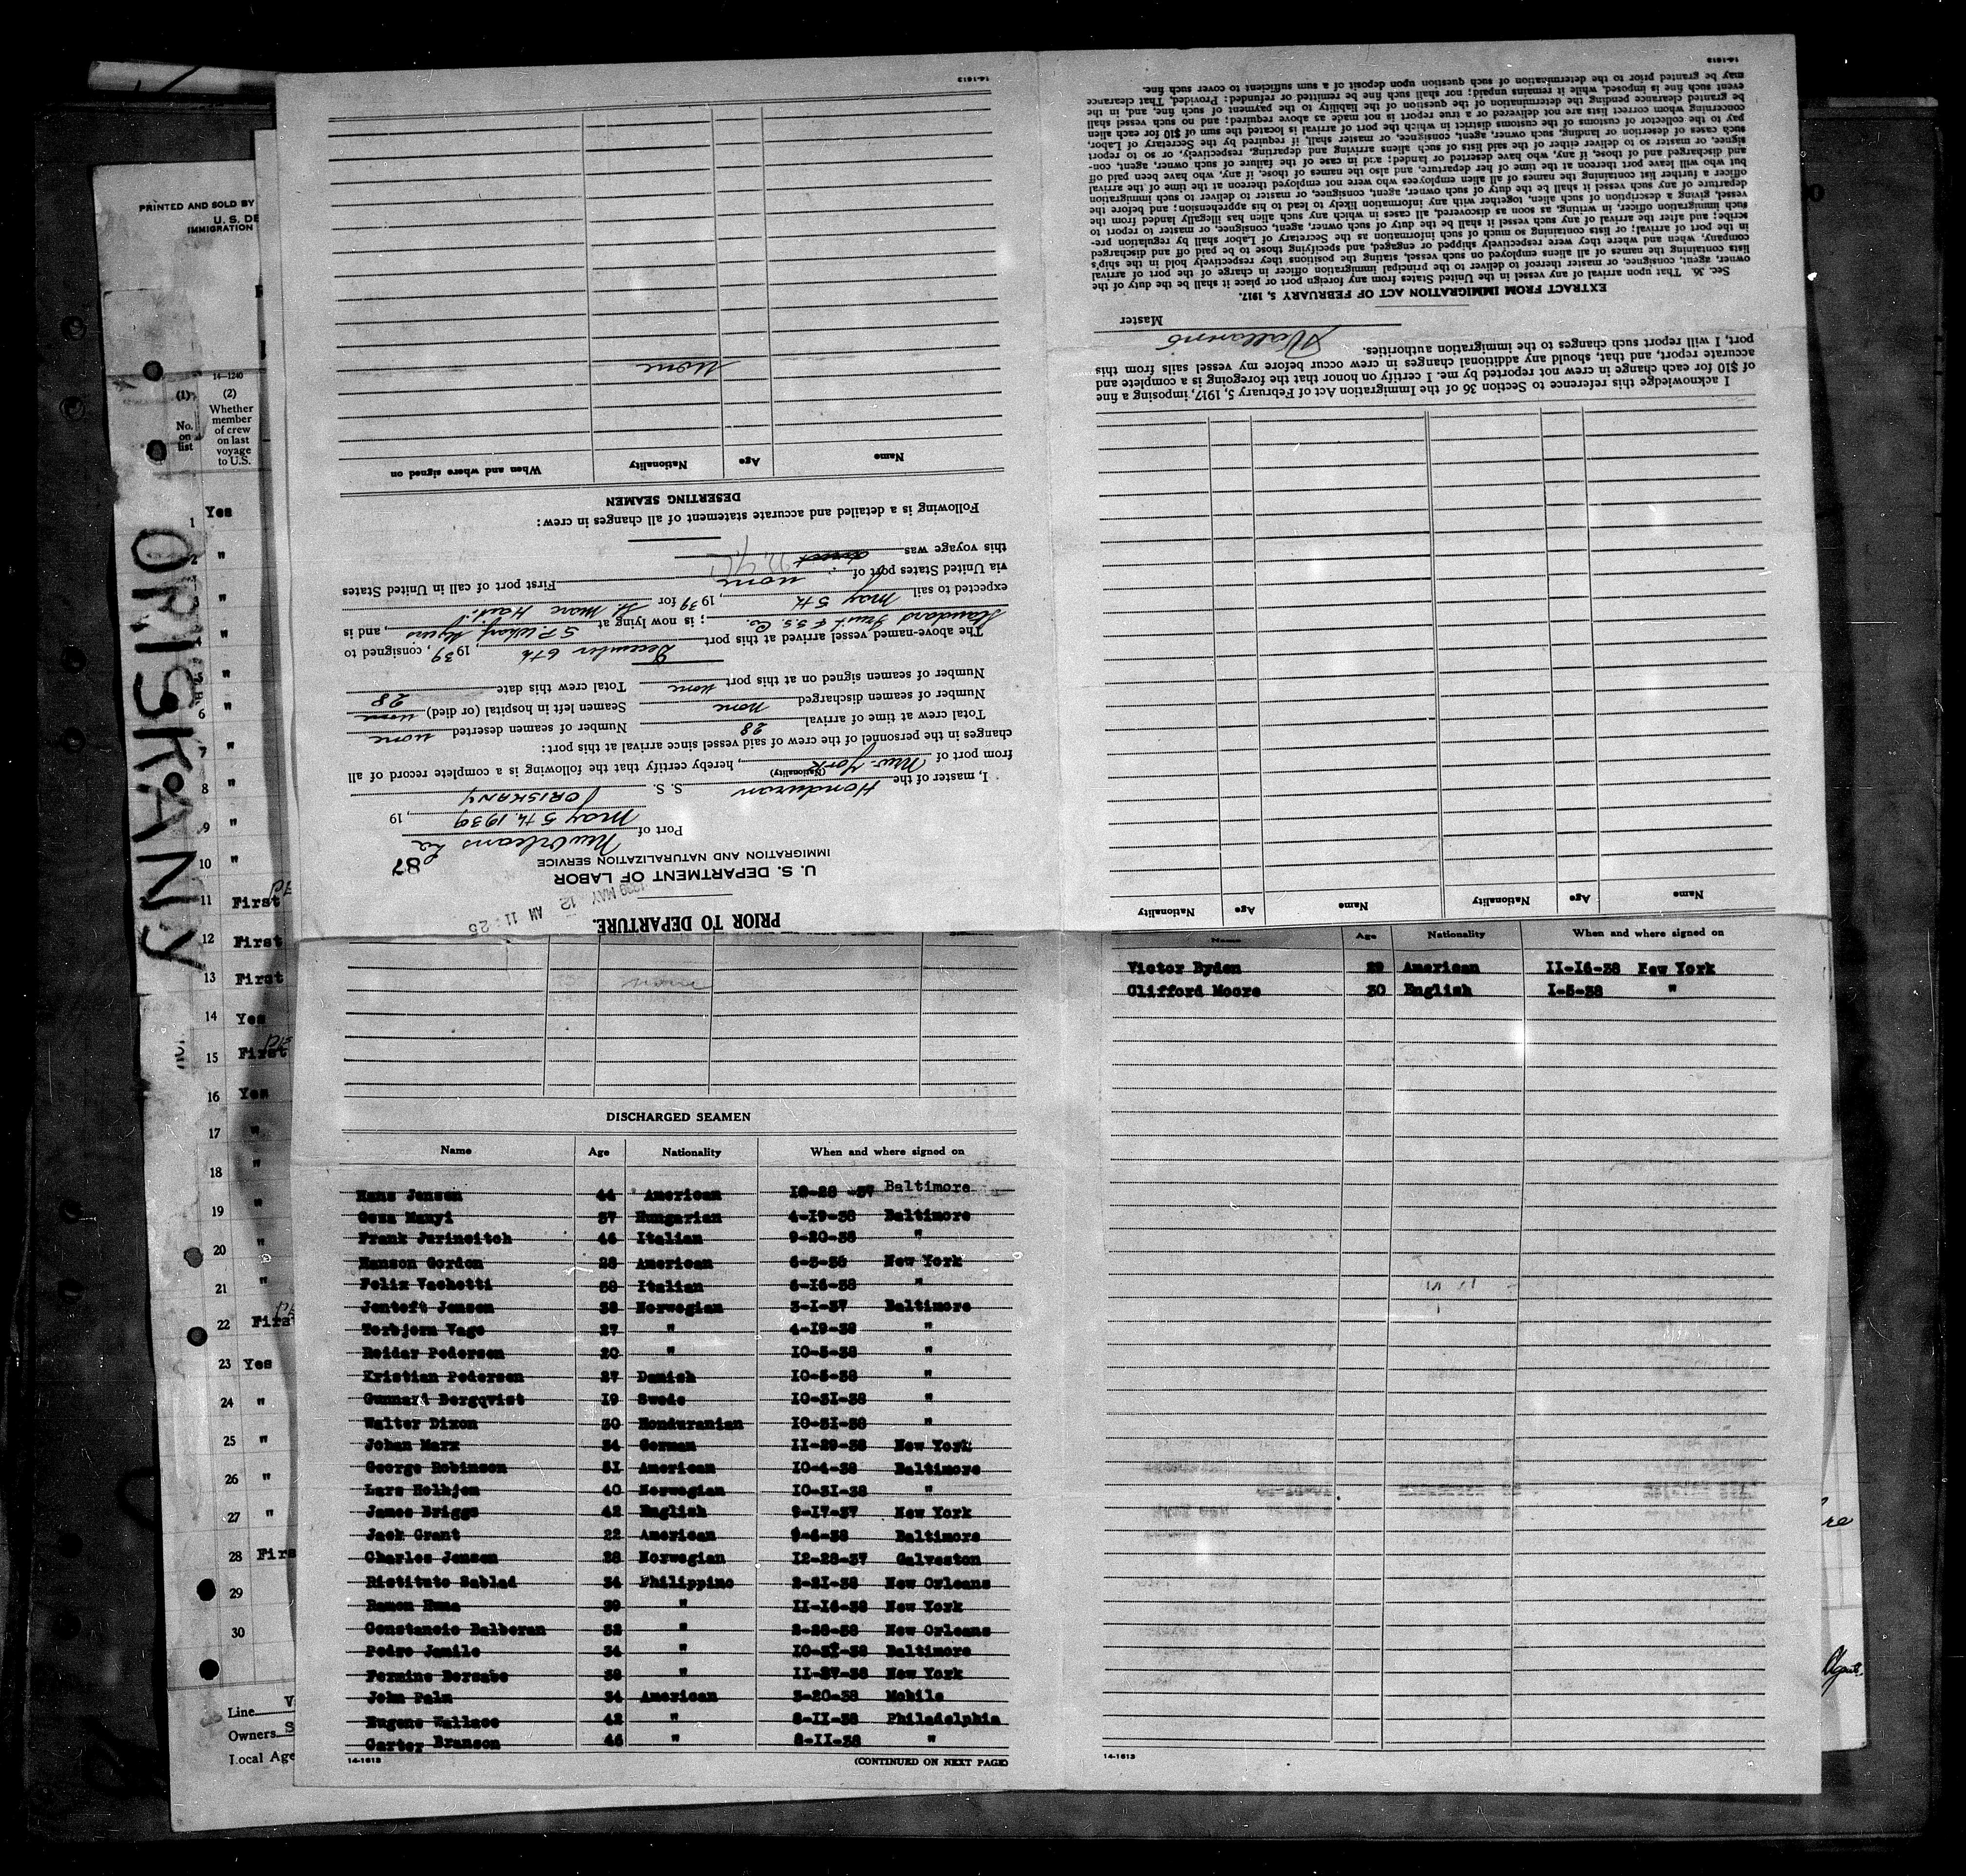 PRINTED AND SOLD BY
U. S. DE
IMMIGRATION
14—1240
(1)
No.
on
list
(2)
Whether
member
of crew
on last
voyage
to U.S.
ORISKANY
1 Yes
2 "
3 "
4 "
5 "
6 "
7 "
8 "
9 "
10 "
11 First
12 First
13 First
14 Yes
15 First
16 Yes
17 "
18 "
19 "
20 "
21 "
22 First
23 Yes
24 "
25 "
26 "
27 "
28 Firs
29
30
Line
Owners S
Local Age
PRIOR TO DEPARTURE.
1939 MAY 12 AM 11:25
U. S. DEPARTMENT OF LABOR
IMMIGRATION AND NATURALIZATION SERVICE
87
Port of New Orleans La
May 5th, 1939, 19
I, master of the Honduran S. S. ORISKANY
(Nationality)
from port of New York, hereby certify that the following is a complete record of all
changes in the personnel of the crew of said vessel since arrival at this port:
Total crew at time of arrival 28 Number of seamen deserted none
Number of seamen discharged none Seamen left in hospital (or died) none
Number of seamen signed on at this port none Total crew this date 28
The above-named vessel arrived at this port December 6th, 1939, consigned to
Standard Fruit & S.S. Co.; is now lying at S.P. Wharf Algiers, and is
expected to sail May 5th, 1939 for St. Marc Haiti
via United States port of none First port of call in United States
this voyage was N.Y.
Following is a detailed and accurate statement of all changes in crew:
DESERTING SEAMEN
Name Age Nationality When and where signed on
None
14-1613
Name Age Nationality Name Age Nationality
I acknowledge this reference to Section 36 of the Immigration Act of February 5, 1917, imposing a fine
of $10 for each change in crew not reported by me. I certify on honor that the foregoing is a complete and
accurate report, and that, should any additional changes in crew occur before my vessel sails from this
port, I will report such changes to the immigration authorities.
Master
EXTRACT FROM IMMIGRATION ACT OF FEBRUARY 5, 1917.
Sec. 36. That upon arrival of any vessel in the United States from any foreign port or place it shall be the duty of the
owner, agent, consignee, or master thereof to deliver to the principal immigration officer in charge of the port of arrival
lists containing the names of all aliens employed on such vessel, stating the positions they respectively hold in the ship's
company, when and where they were respectively shipped or engaged, and specifying those to be paid off and discharged
in the port of arrival; or lists containing so much of such information as the Secretary of Labor shall by regulation pre-
scribe; and after the arrival of any such vessel it shall be the duty of such owner, agent, consignee, or master to report to
such immigration officer, in writing, as soon as discovered, all cases in which any such alien has illegally landed from the
vessel, giving a description of such alien, together with any information likely to lead to his apprehension; and before the
departure of any such vessel it shall be the duty of such owner, agent, consignee, or master to deliver to such immigration
officer a further list containing the names of all alien employees who were not employed thereon at the time of the arrival
but who will leave port thereon at the time of her departure, and also the names of those, if any, who have been paid off
and discharged and of those, if any, who have deserted or landed; and in case of the failure of such owner, agent, con-
signee, or master so to deliver either of the said lists of such aliens arriving and departing, respectively, or so to report
such cases of desertion or landing, such owner, agent, consignee, or master shall, if required by the Secretary of Labor,
pay to the collector of customs of the customs district in which the port of arrival is located the sum of $10 for each alien
concerning whom correct lists are not delivered or a true report is not made as above required; and no such vessel shall
be granted clearance pending the determination of the question of the liability to the payment of such fine, and, in the
event such fine is imposed, while it remains unpaid; nor shall such fine be remitted or refunded: Provided, That clearance
may be granted prior to the determination of such question upon deposit of a sum sufficient to cover such fine.
14-1613
None
DISCHARGED SEAMEN
Name Age Nationality When and where signed on
Hans Jensen 44 American 10-28-37 Baltimore
Geza Manyi 37 Hungarian 4-19-38 Baltimore
Frank Jurincitch 46 Italian 9-20-38 "
Hanson Gordon 28 American 6-3-38 New York
Felix Vachetti 38 Italian 6-16-38 "
Jentoft Jensen 38 Norwegian 3-1-37 Baltimore
Torbjorn Vage 27 " 4-19-38 "
Reidar Pedersen 20 " 10-5-38 "
Kristian Pedersen 27 Danish 10-5-38 "
Gunnart Bergqvist 19 Swede 10-31-38 "
Walter Dixon 30 Honduranian 10-31-38 "
Johan Marx 34 German 11-29-38 New York
George Robinson 51 American 10-4-38 Baltimore
Lars Holhjem 40 Norwegian 10-31-38 "
James Briggs 42 English 9-17-37 New York
Jack Grant 22 American 9-6-38 Baltimore
Charles Jensen 28 Norwegian 12-28-37 Galveston
Ristituto Sablad 34 Philippino 2-21-38 New Orleans
Ramon Huna 39 " 11-16-38 New York
Constancio Balberan 32 " 2-28-38 New Orleans
Pedro Jamilo 34 " 10-31-38 Baltimore
Fermine Bersabe 38 " 11-27-38 New York
John Palm 34 American 3-20-38 Mobile
Eugene Wallace 42 " 8-11-38 Philadelphia
Carter Branson 46 " 8-11-38 "
14-1613 (CONTINUED ON NEXT PAGE)
Name Age Nationality When and where signed on
Victor Ryden 29 American 11-16-38 New York
Clifford Moore 30 English 1-5-38 "
14-1613